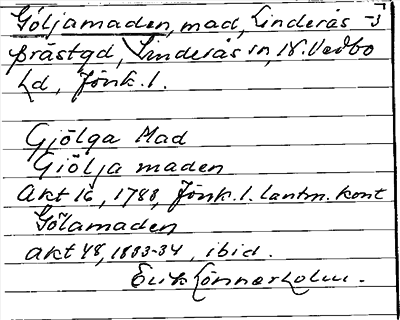 Göljamaden, mad, Linderås
prästgd, Linderås sn, N. Vedbo
hd, Jönk. l.
Gjölga Mad
Giölja maden
Akt 16, 1788, Jönk. l. lantm. kont
Gölamaden
akt 48, 1833-34, ibid.
Erik Lönnerholm.